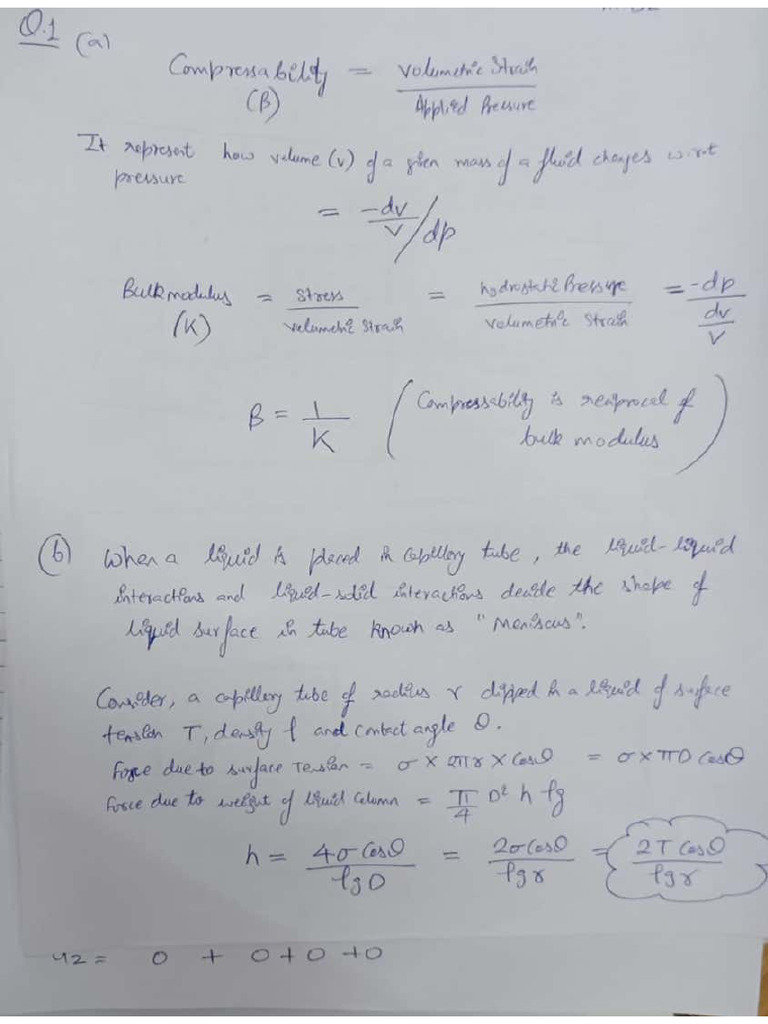 Q.1 (a)
Compressability (β) = Volumetric Strain / Applied Pressure
It represent how volume (v) of a given mass of a fluid changes w.r.t
pressure
= -dv/v / dp
Bulk modulus (K) = Stress / Volumetric Strain = hydrostatic Pressure / Volumetric Strain = -dp / dv/v
β = 1/K (Compressability is reciprocal of
bulk modulus)
(b) When a liquid is placed in capillary tube, the liquid-liquid
interactions and liquid-solid interactions decide the shape of
liquid surface in tube known as "Meniscus".
Consider, a capillary tube of radius r dipped in a liquid of surface
tension T, density ρ and contact angle θ.
Force due to surface Tension = σ × 2πr × Cosθ = σ × πD Cosθ
Force due to weight of liquid Column = π/4 D² h ρg
h = 4σ Cosθ / ρgD = 2σ Cosθ / ρgr = 2T Cosθ / ρgr
42 = 0 + 0+0+0